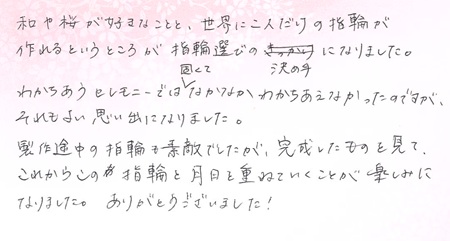 和や桜が好きなことと、世界に二人だけの指輪が
作れるというところが指輪選びのきっかけになりました。
固くて 決め手
わかちあうセレモニーではなかなかわかちあえなかったのですが、
それもよい思い出になりました。
製作途中の指輪も素敵でしたが、完成したものを見て、
これからこの指輪と月日を重ねていくことが楽しみに
なりました。ありがとうございました！